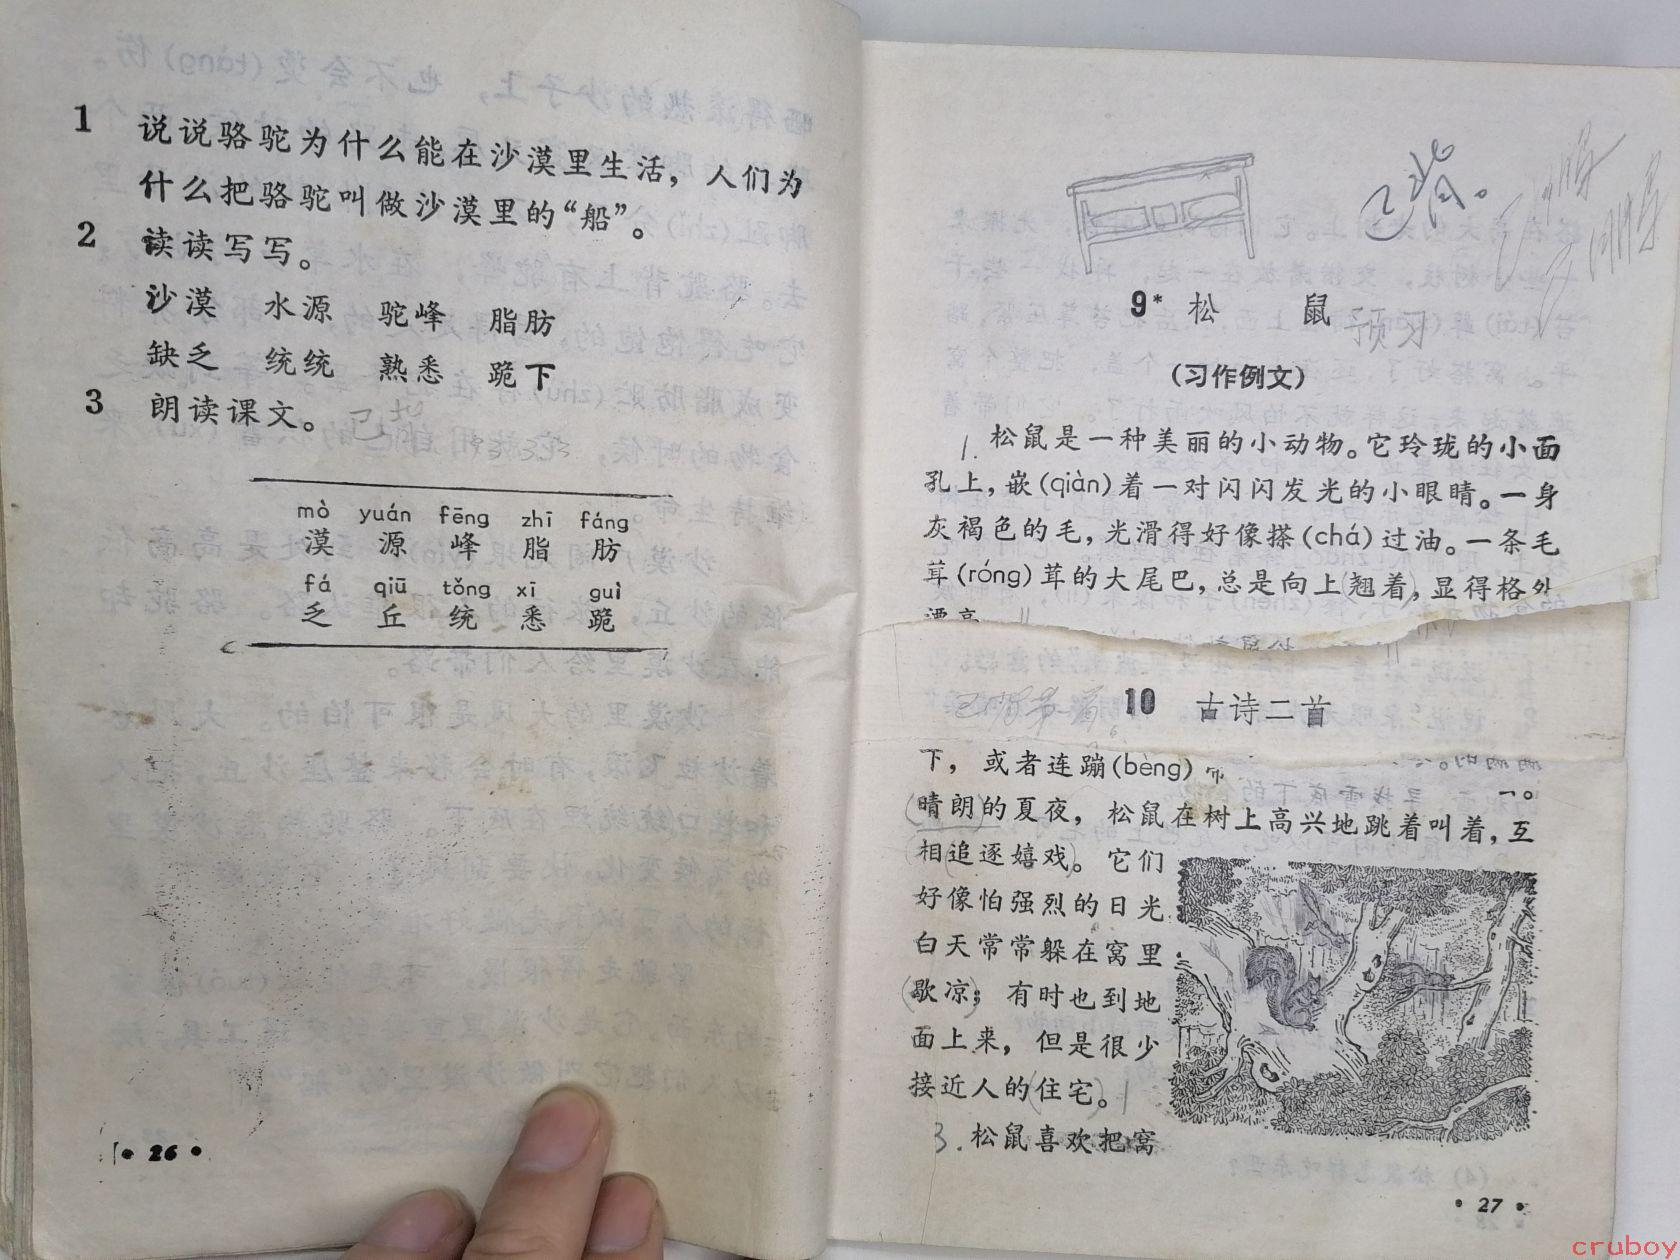 1 说说骆驼为什么能在沙漠里生活，人们为
什么把骆驼叫做沙漠里的“船”。
2 读读写写。
沙漠 水源 驼峰 脂肪
缺乏 统统 熟悉 跪下
3 朗读课文。
mò yuán fēng zhī fáng
漠 源 峰 脂 肪
fá qiū tǒng xī guì
乏 丘 统 悉 跪
• 26 •
已背。
9* 松 鼠
预习
(习作例文)
1. 松鼠是一种美丽的小动物。它玲珑的小面
孔上，嵌(qiàn)着一对闪闪发光的小眼睛。一身
灰褐色的毛，光滑得好像搽(chá)过油。一条毛
茸(róng)茸的大尾巴，总是向上翘着，显得格外
漂亮
10 古诗二首
下，或者连蹦(bèng)
晴朗的夏夜，松鼠在树上高兴地跳着叫着，互
相追逐嬉戏。它们
好像怕强烈的日光
白天常常躲在窝里
歇凉；有时也到地
面上来，但是很少
接近人的住宅。
3. 松鼠喜欢把窝
• 27 •
cruboy